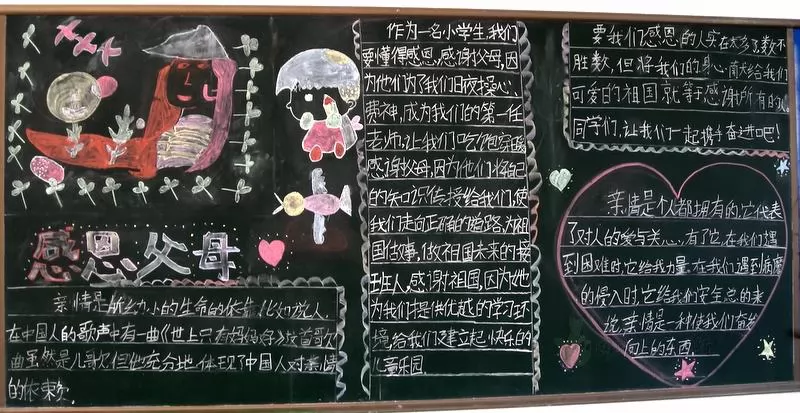 感恩父母
亲情是所幼小的生命的依靠,比如说人
在中国人的歌声中有一曲《世上只有妈妈好》这首歌
曲虽然是儿歌,但他充分地体现了中国人对亲情
的依赖.
作为一名小学生,我们
要懂得感恩,感谢父母,因
为他们为了我们日夜操心、
费神,成为我们的第一任
老师,让我们吃饱穿暖
感谢父母,因为他们将自己
的知识传授给我们,使
我们走向正确的道路,为祖
国做事,做祖国未来的接
班人,感谢祖国,因为她
为我们提供优越的学习环
境给我们建立起快乐的
儿童乐园.
要我们感恩的人实在太多了,数不
胜数,但将我们的身心
可爱的祖国就等于感谢所有的人
同学们,让我们一起携手奋进吧!
亲情是个人都拥有的,它代表
了对人的爱与关心,有了它,在我们遇
到困难时,它给我力量,在我们遇到病魔
的侵入时,它给我们安全,总的来
说,亲情是一种使我们奋发
向上的东西